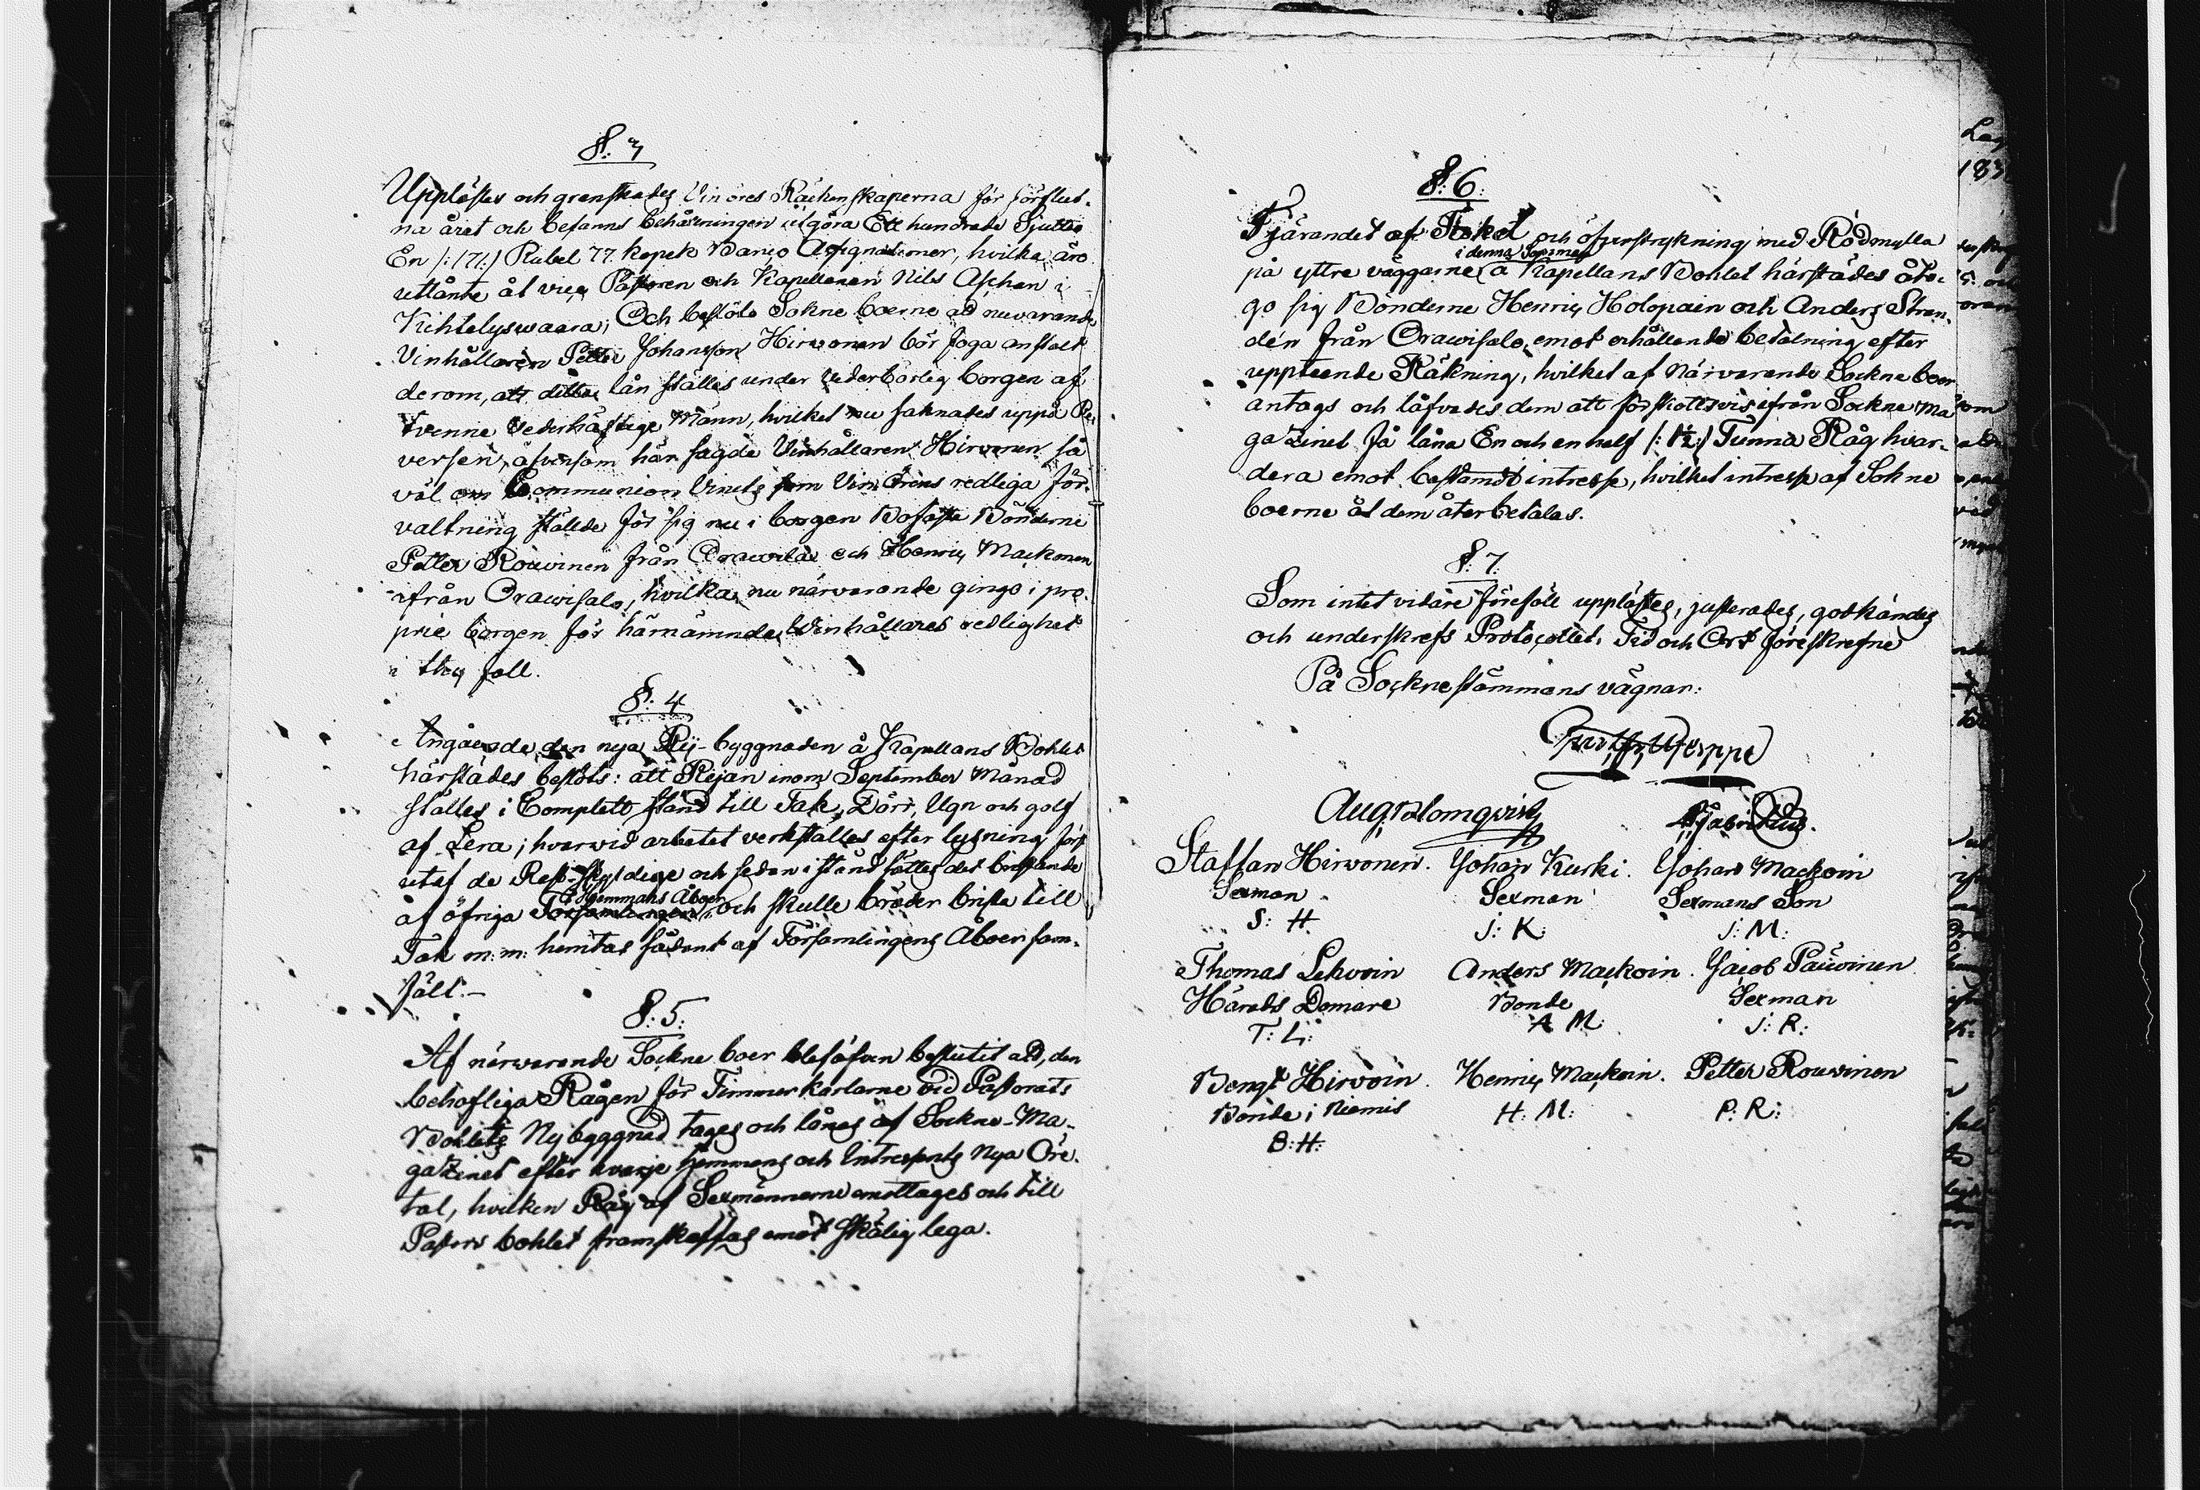 §: 3
Upplästes och granskades Vin öres Räkenskaperna för förflut-
na året och befanns behållningen utgöra Ett hundrade Sjuttio
En /:171:/ Rubel 77 kopek Banco Assignationer, hvilka äro
utlånte åt vice Pastoren och Kapellanen Nils Aschan i
Kihtelyswaara; Och beslöto Sokne boerne ad nuvarande
Vinhållaren Petter Johansson Hirvonen bör foga anstalt
derom, att detta lån ställes under vederbörlig borgen af
tvenne Vederhäftige Männ, hvilket nu saknades uppå Re-
versen, äfvensom här sagde Vinhållaren Hirvonen så
väl om Communion Vinets som Vin Örens redliga för-
valtning ställde för sig nu i borgen Bofaste Bönderne
Petter Rouvinen från Orawilax och Henric Mackonen
ifrån Orawisalo, hvilka nu närvarande gingo i pro-
prie borgen för härnämnde Winhållares redlighet
i thy fall.
§: 4
Angående den nya Rij-byggnaden å Kapellans Bohlet
härstädes beslöts: att Rijan inom September Månad
ställes i Complett stånd till Tak, Dörr, Ugn och golf
af Lera; hvarvid arbetet verkställes efter lysning först
utaf de Rest-skyldige och sedan i stånd sättes det bristande
Hemmans Åboer
af öfriga Församlingen, och skulle bräder brista till
Tak m: m: hemtas sådant af Församlingens Åboer sam-
fält.-
§: 5:
Af närwarande Sockne boer blef äfven beslutit ad, den
behöfliga Rågen för Timmerkarlarne vid Pastorats
Bohlets Nybyggnad tages och lånes af Sockne-Ma-
gazinet efter hvarje hemmans och Intressents Nya Öre-
tal, hvilken Råg af Sexmännerne emottages och till
Pastors bohlet framskaffas emot skälig lega.
§: 6:
Tjärandet af Taket och öfverstrykning med Rödmylla
i denna Sommar
på yttre väggarne å Kapellans Bohlet härstädes åto-
go sig Bönderne Henric Holopain och Anders Stran-
dén från Orawisalo emot erhållande betalning efter
uppteende Räkning, hvilket af Närvarande Sockne boer
antogs och låfvades dem att förskottsvis ifrån Sockne Ma
gazinet få låna En och en half /: 1½:/ Tunna Råg hvar-
dera emot bestämdt intresse, hvilket intresse af Sokne
boerne åt dem återbetalas.
§: 7:
Som intet vidare förefäll upplästes, justerades, godkändes
och underskrefs Protocollet. Tid och Ort föreskrefne
På Sockne stämmans vägnar:
Aug Blomqvist
Fabritius.
Staffan Hirvonen. Johan Kurki. Johan Mackoin
Sexman. Sexman Sexmans Son
S: H. J: K: J: M:
Thomas Lehvoin Anders Mackoin. Jacob Päivinen
Härads Domare Bonde Sexman
T: L: A M: J: R:
Bengt Hirvoin. Henric Mackoin. Petter Rouvinen
Bonde i Niemis H: M: P: R:
B: H: